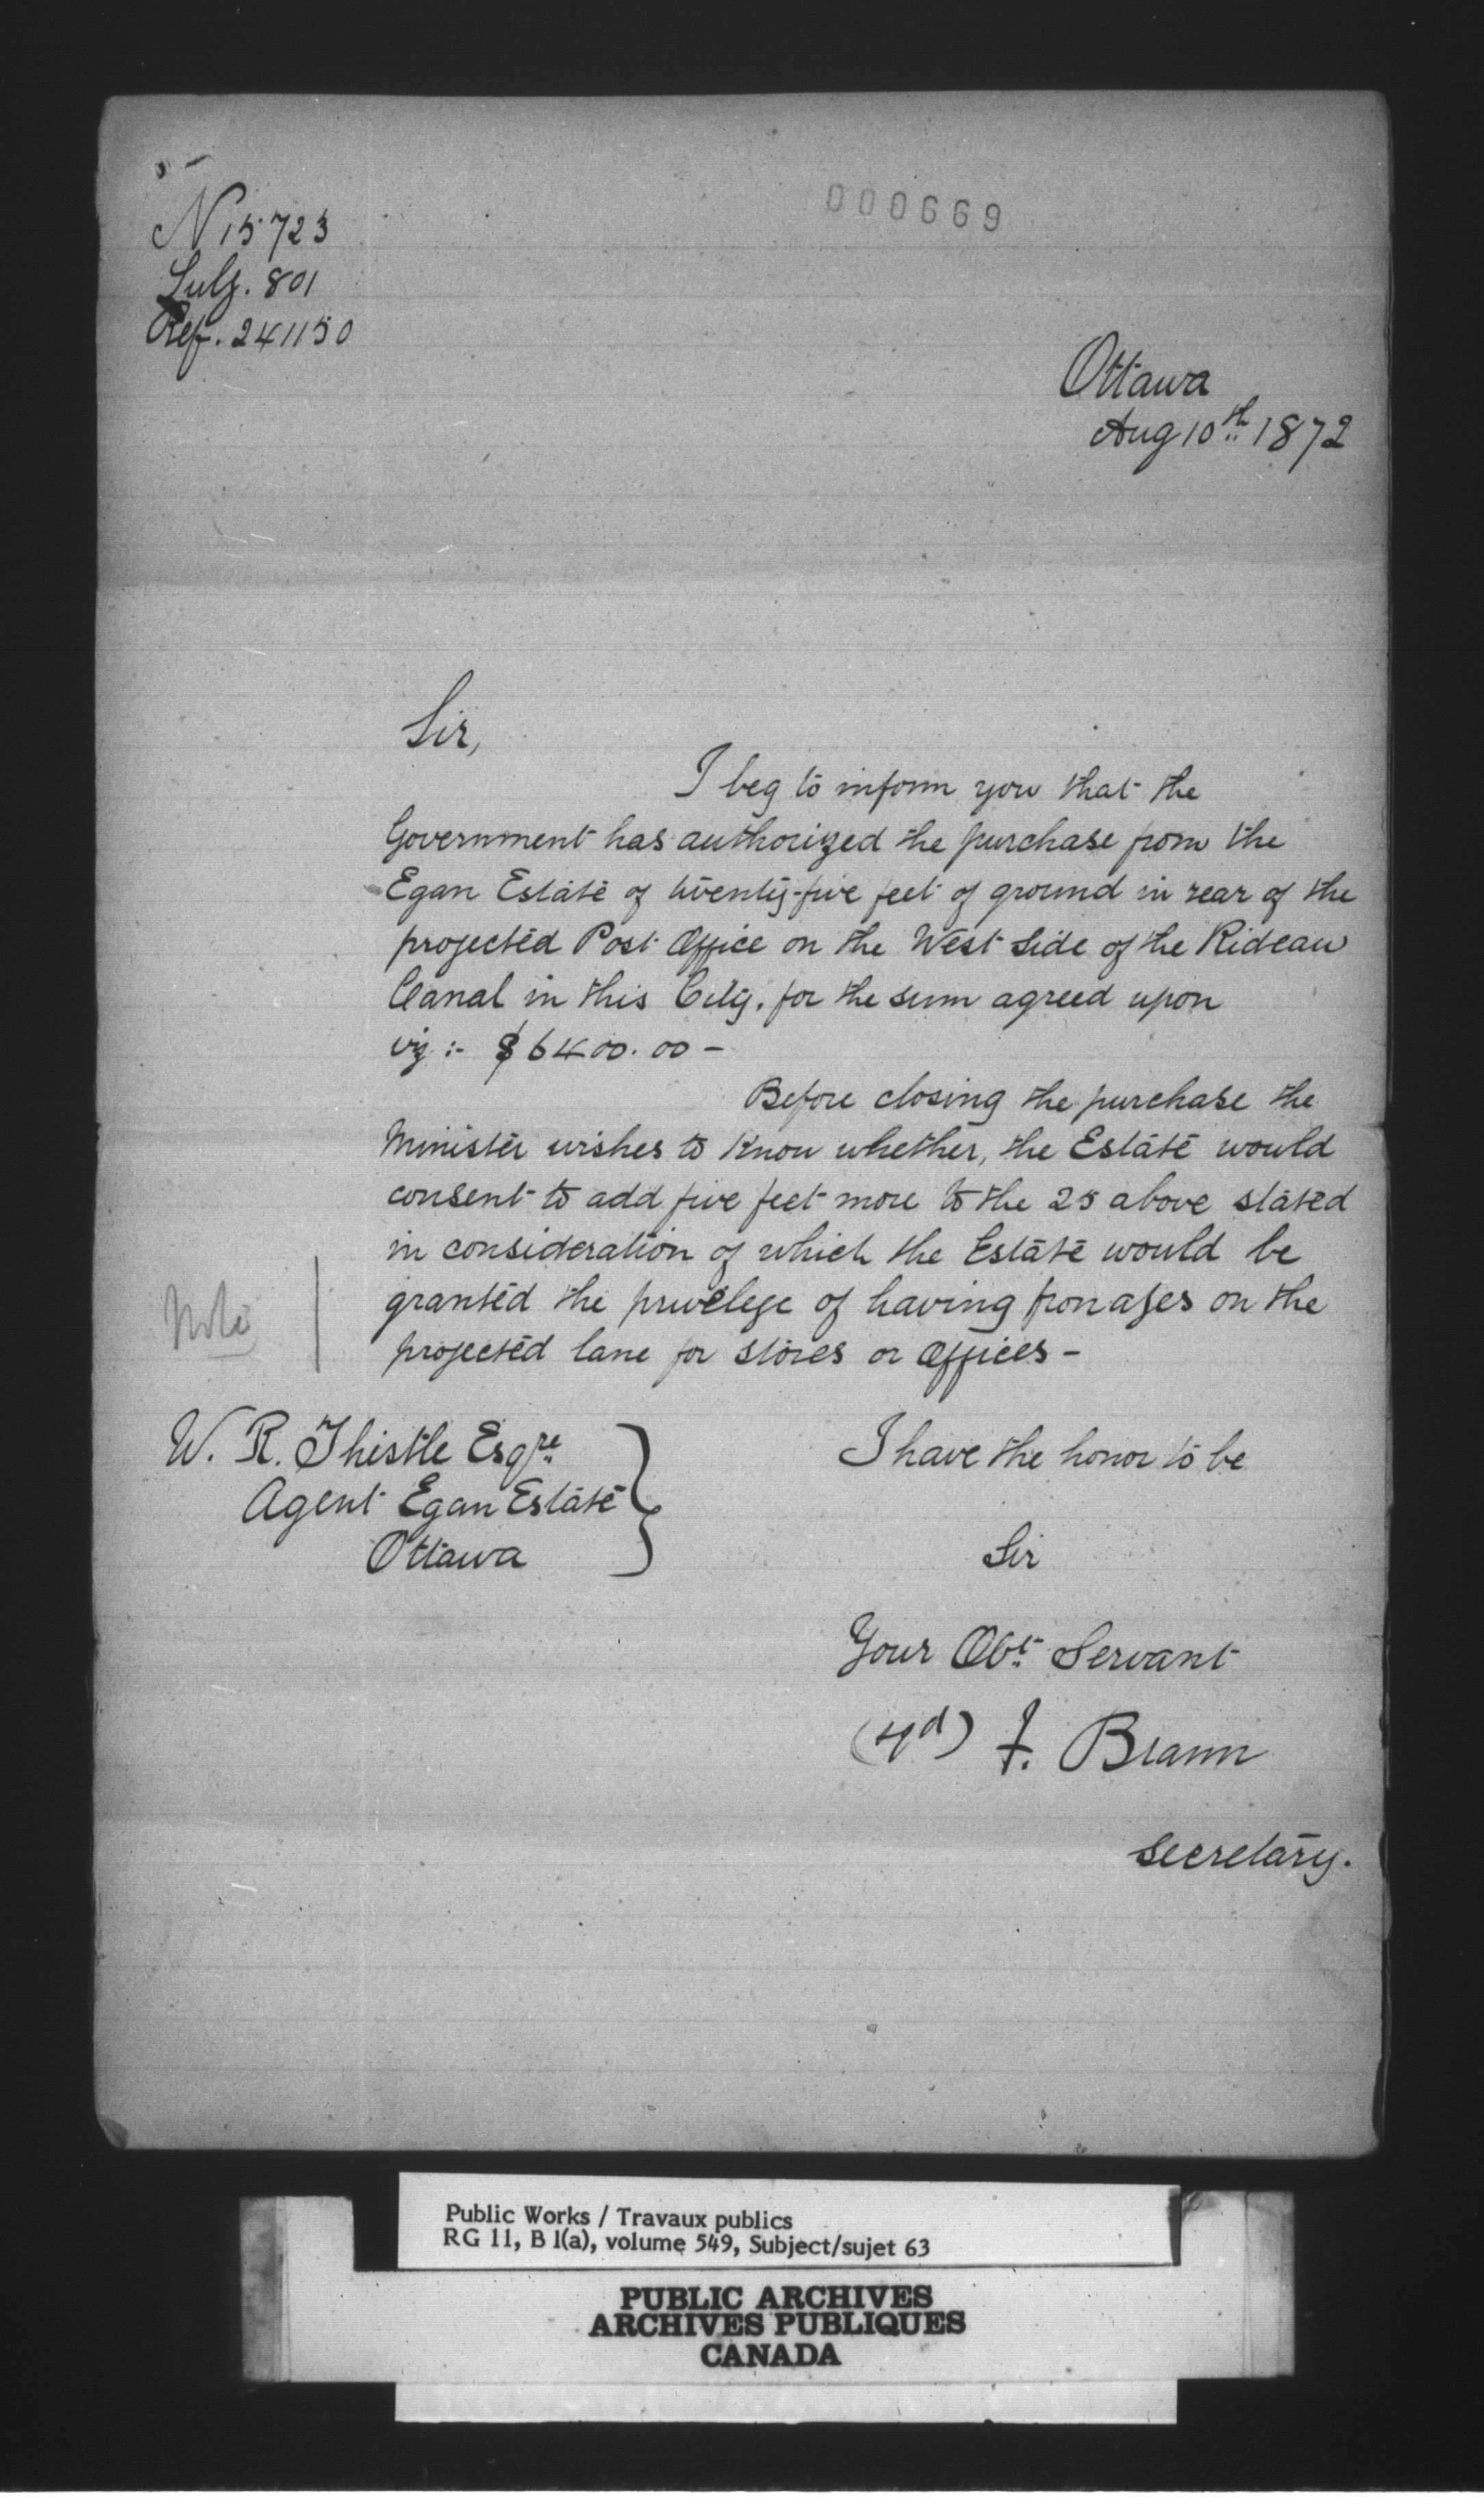 N 15723
Subj. 801
Ref. 241150
000669
Ottawa
Aug 10th 1872
Sir,
I beg to inform you that the
Government has authorized the purchase from the
Egan Estate of twenty-five feet of ground in rear of the
projected Post Office on the West Side of the Rideau
Canal in this City, for the sum agreed upon
viz :- $6400.00 -
Before closing the purchase the
Minister wishes to know whether, the Estate would
consent to add five feet more to the 25 above stated
in consideration of which the Estate would be
granted the privelege of having fronages on the
projected lane for stores or offices -
Note
W. R. Thistle Esqre
Agent Egan Estate
Ottawa
I have the honor to be
Sir
Your Obt Servant
(sgd) F. Braun
Secretary.
Public Works / Travaux publics
RG 11, B 1(a), volume 549, Subject/sujet 63
PUBLIC ARCHIVES
ARCHIVES PUBLIQUES
CANADA